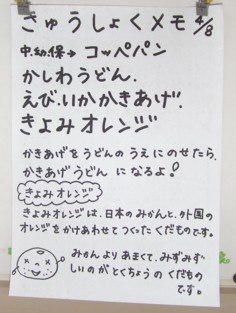 きゅうしょくメモ 4/8
中.幼.保→ コッペパン
かしわうどん.
えび.いかかきあげ.
きよみオレンジ
かきあげをうどんのうえにのせたら、
かきあげうどんになるよ!
きよみオレンジ
きよみオレンジは、日本のみかんと、外国の
オレンジをかけあわせてつくったくだものです。
みかんよりあまくて、みずみず
しいのがとくちょうのくだもの
です。